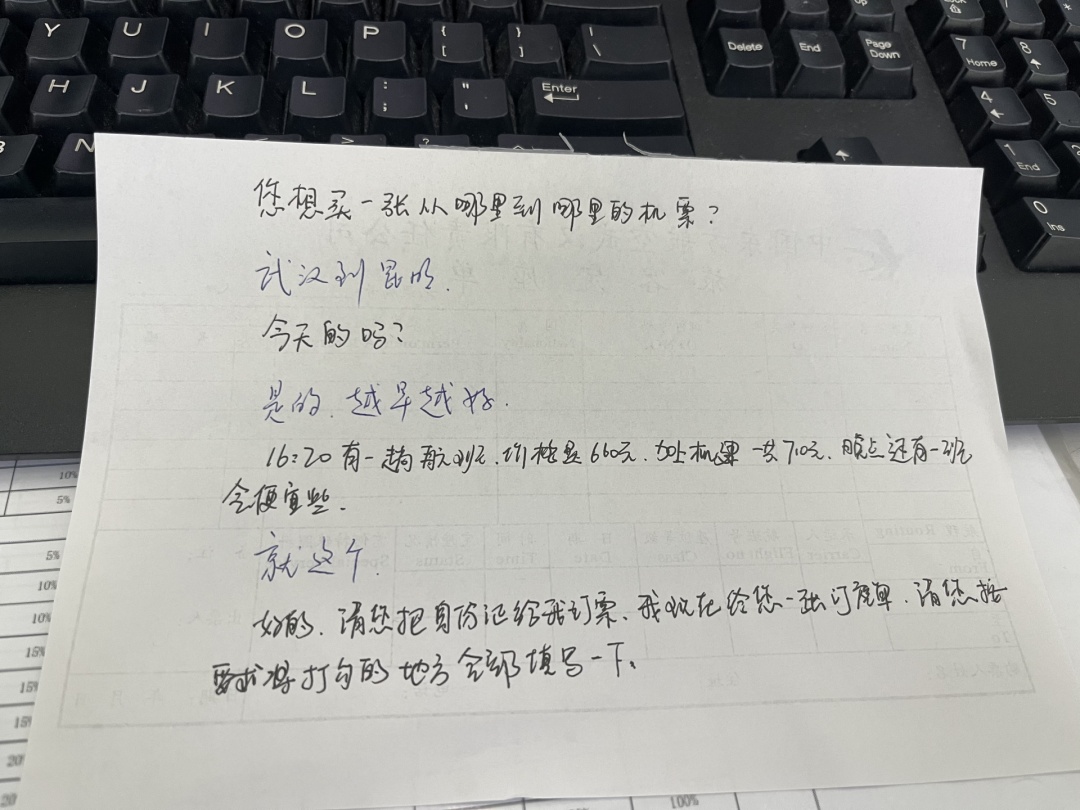 Y U I O P { [ } ] | \
Delete End Page Down
7 Home 8
H J K L : ; " ' Enter
4 5
N
1 End
0 Ins
您想买一张从哪里到哪里的机票？
武汉到昆明.
今天的吗？
是的.越早越好.
16:20有一趟航班.价格是660元.加上机建一共710元.晚点还有一班
会便宜些.
就这个.
好的.请您把身份证给我订票.我现在给您一张订座单.请您按
要求将打勾的地方全部填写一下.
10%
5%
5%
10%
10%
15%
15%
15%
20%
20
100%